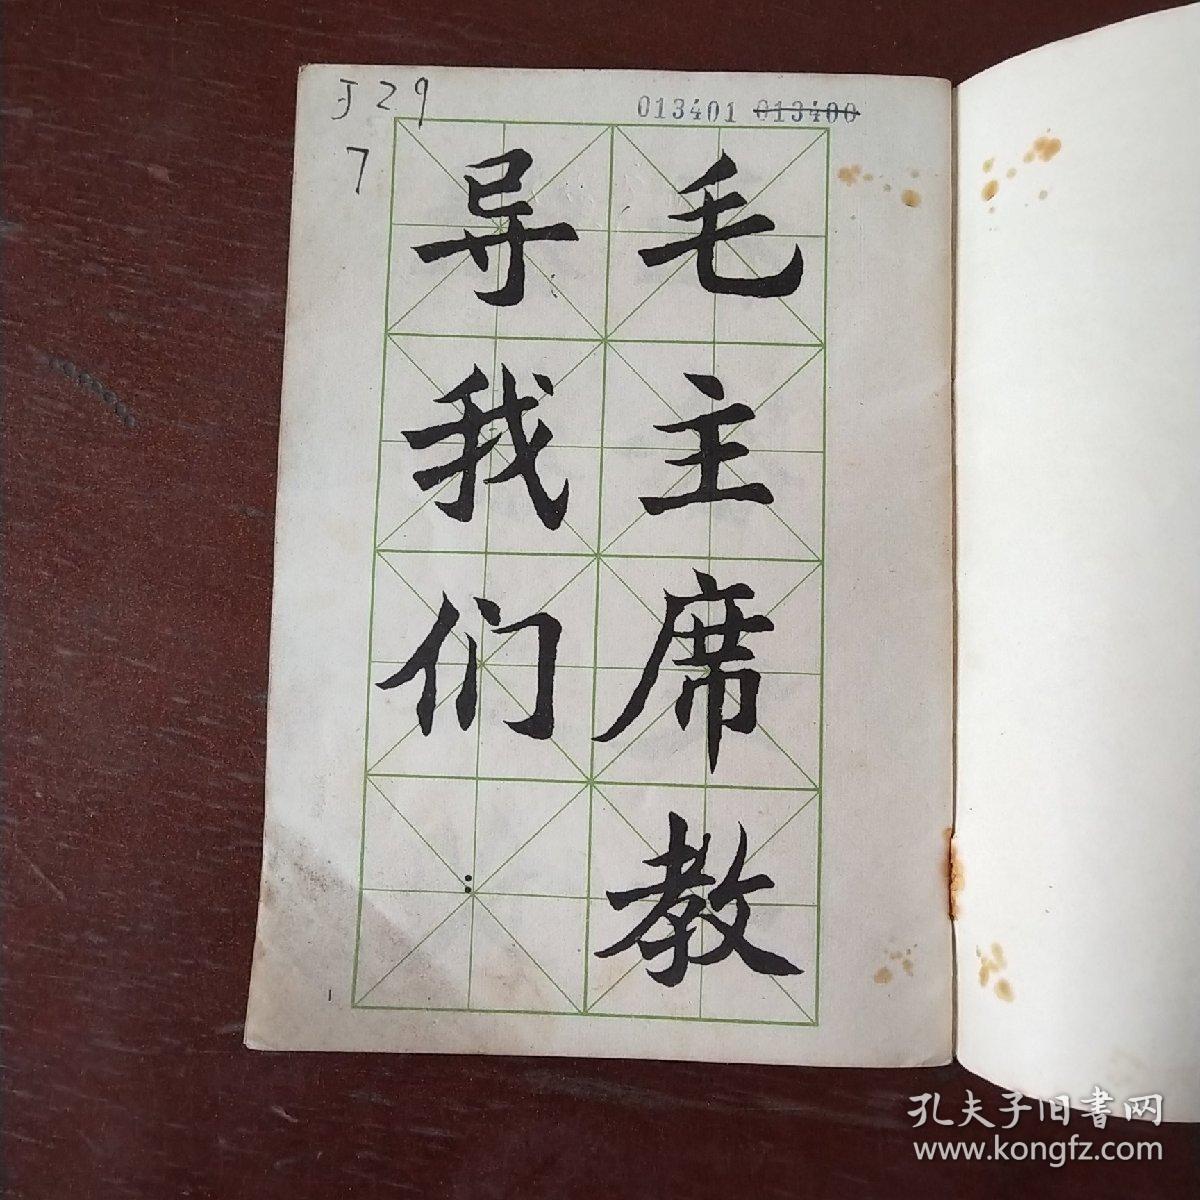 J29
7
013401 013400
毛主席教
导我们
：
1
孔夫子旧书网
www.kongfz.com